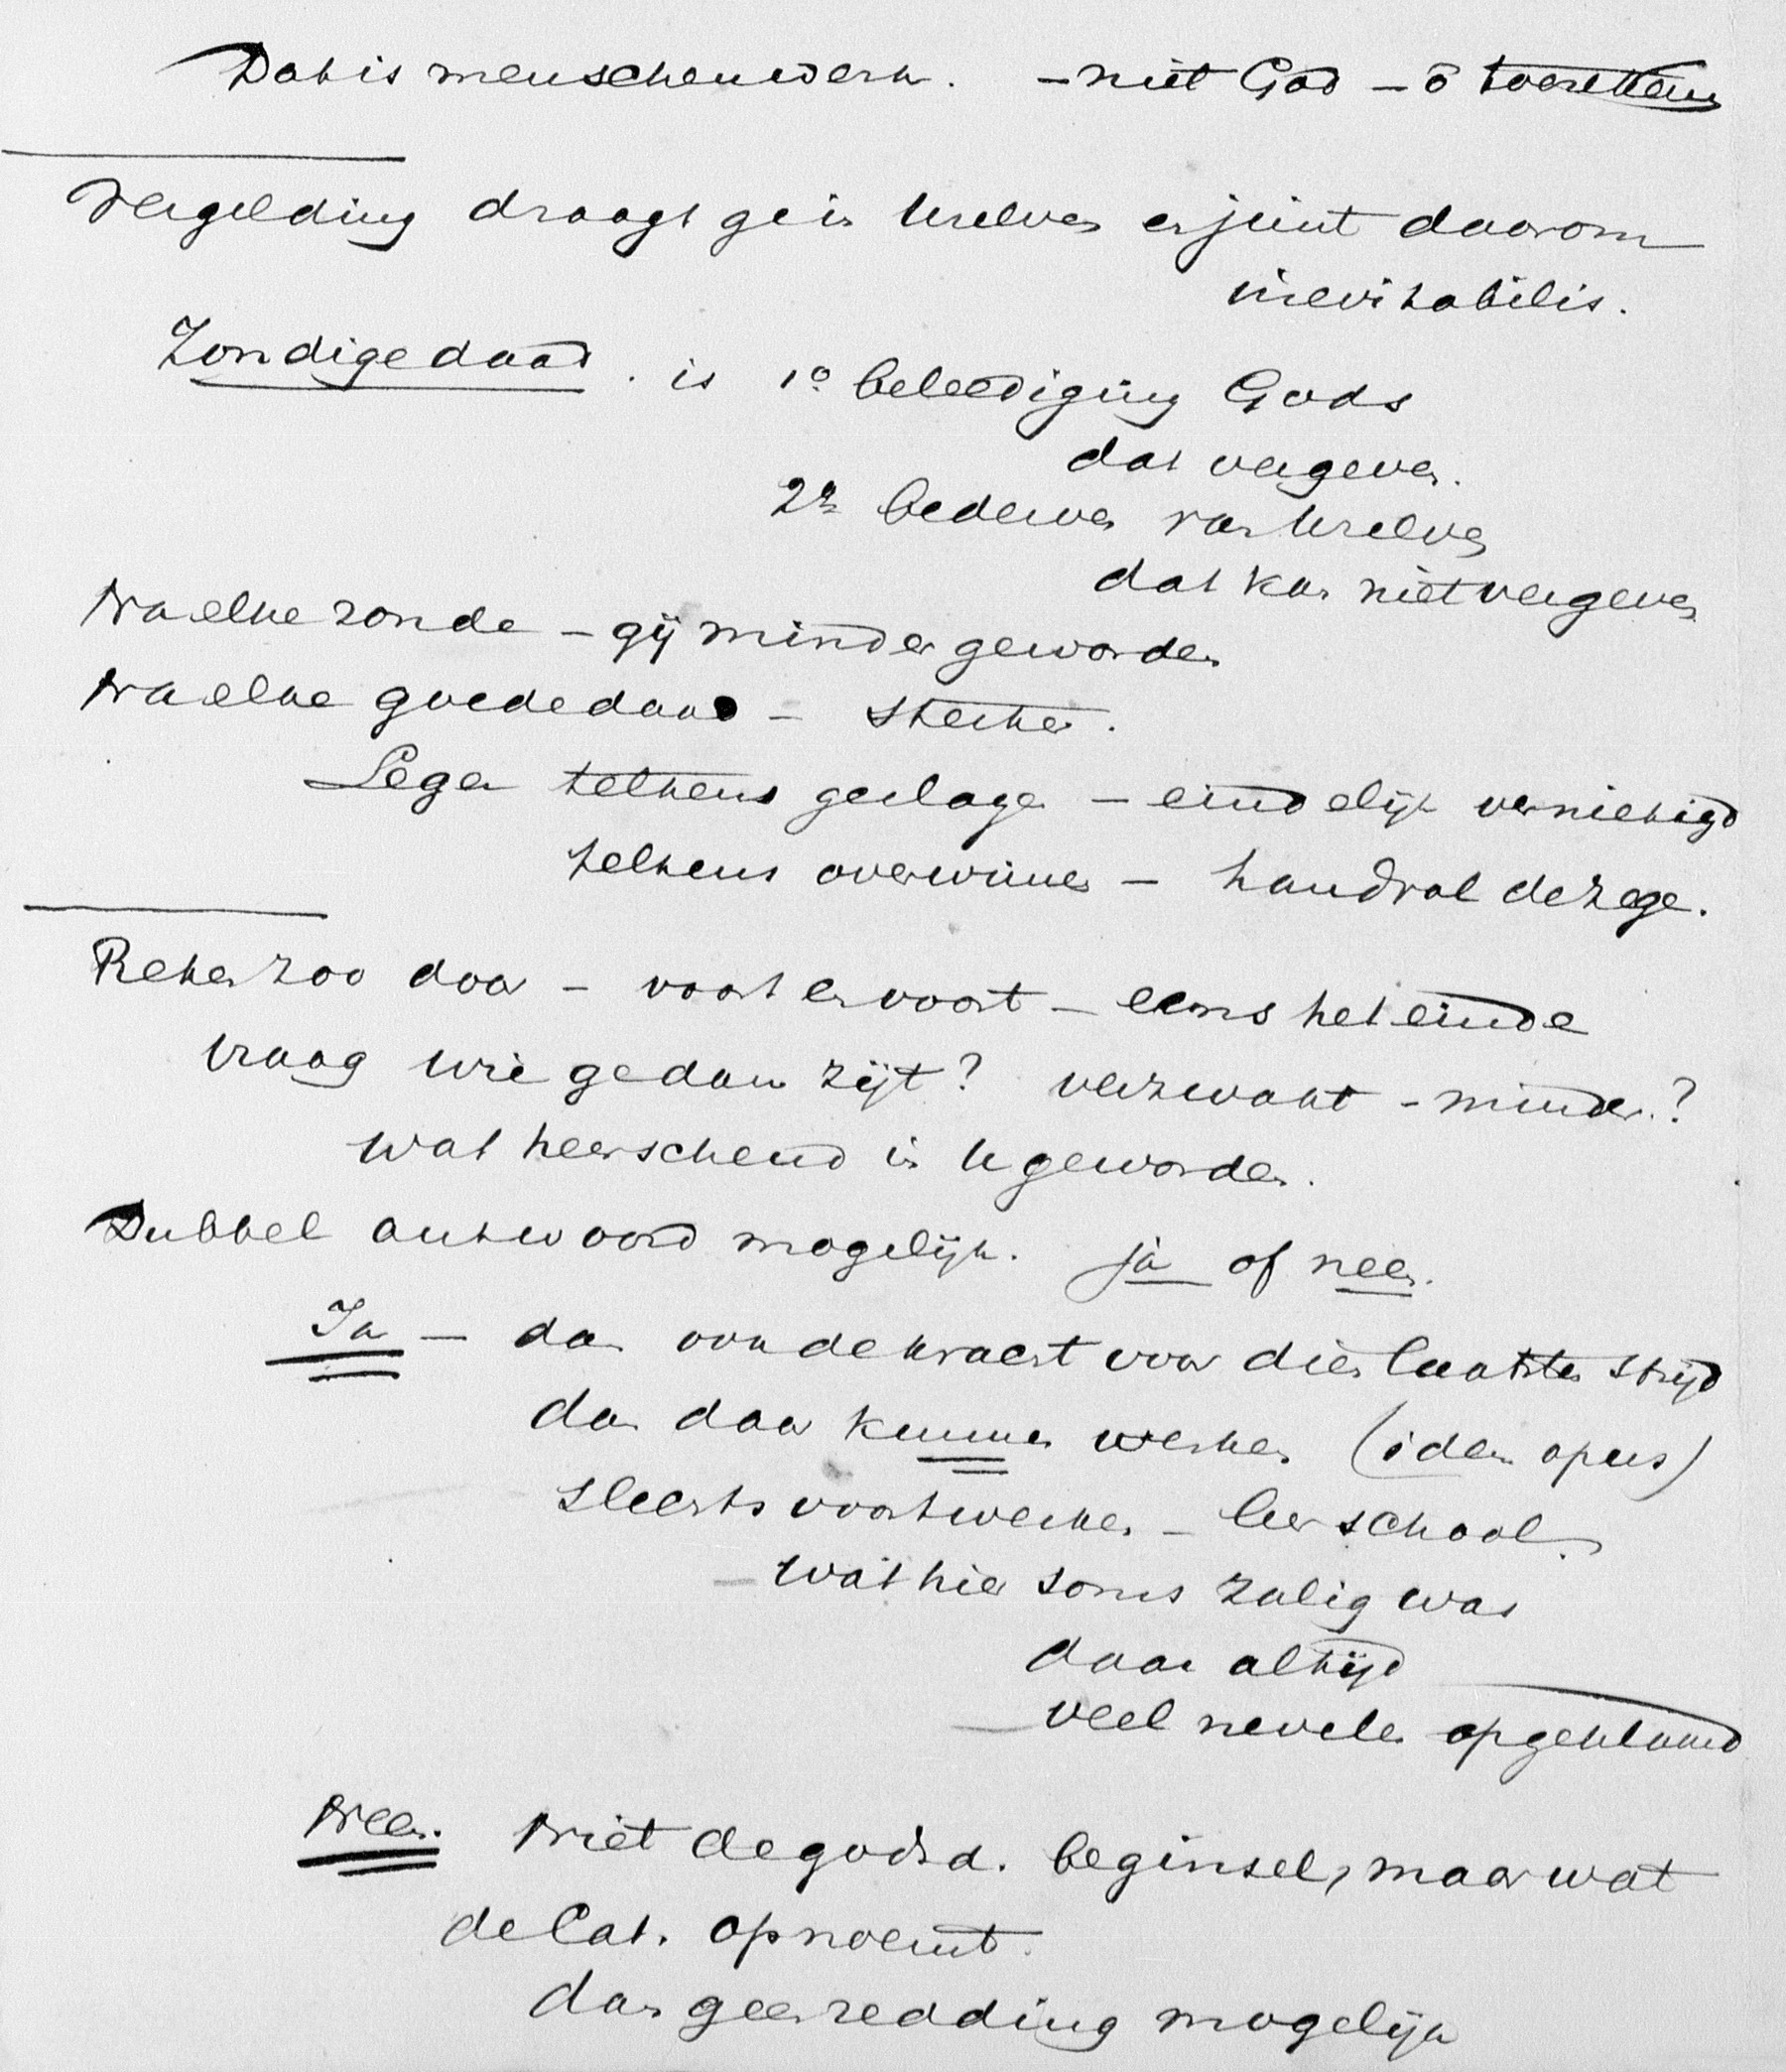 Dat is menschenwerk. – niet God – ō
Vergelding draagt ge in Uzelven en juist daarom
inevitabilis.
Zondige daad. is 1o beleediging Gods
dat vergeven.
2o bederven van Uzelven
dat kan niet vergeven
Na elke zonde – gij minder geworden
Na elke goede daad – sterker.
Leger telkens geslagen – eindelijk vernietigd
telkens overwinnen – handvol de zege.
Reken zoo door – voort en voort – eens het einde
Vraag wie ge dan zijt? verzwakt – minder?
Wat heerschend in U geworden.
Dubbel antwoord mogelijk. ja of neen.
Ja – dan ook de kracht voor dien laatsten strijd
dan daar kunnen werken (idem opus)
slechts voortwerken – leerschool.
– Wat hier soms zalig was
daar altijd
– veel nevelen opgeklaard
Neen. Niet de godsd. beginsel, maar wat
de Cat. opnoemt.
dan geen redding mogelijk